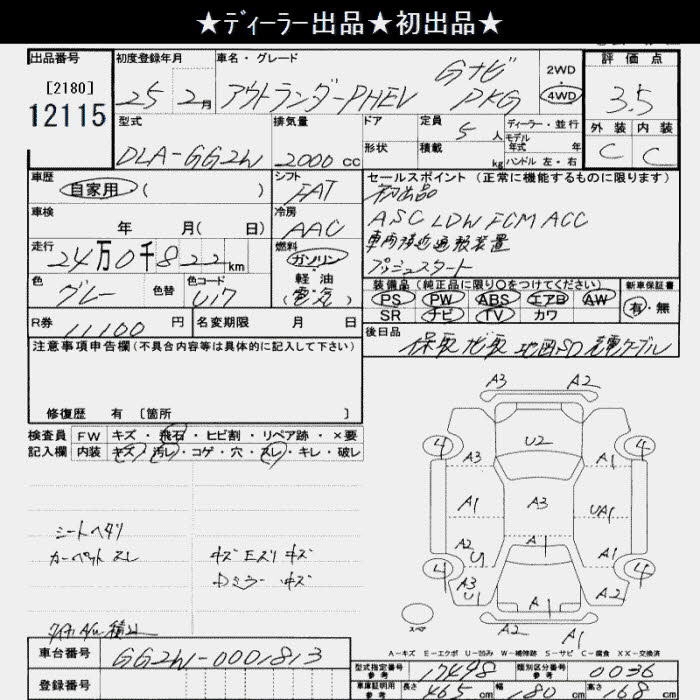 ★ディーラー出品★初出品★
出品番号 [2180] 12115
初度登録年月 25 2月
車名・グレード アウトランダーPHEV Gナビ PKG
2WD ・ 4WD
評価点 3.5
外装 C 内装 C
型式 DLA-GG2W
排気量 2000 cc
ドア 形状
定員 5 人
積載 kg
ディーラー・並行
モデル年式 年
ハンドル 左・右
車歴 自家用 ( )
シフト FAT
セールスポイント (正常に機能するものに限ります)
初出品
ASC LDW FCM ACC
車両接近通報装置
プッシュスタート
車検 年 月( 日)
冷房 AAC
走行 24万0千822km
燃料 ガソリン・軽油 (電気)
色 グレー 色替 色コード U17
装備品 (純正品に限り○をつけてください)
PS PW ABS エアB AW
SR ナビ TV カワ
新車保証書 有・無
R券 11100 円
名変期限 月 日
後日品 保取 ナビ取 地図SD 充電ケーブル
注意事項申告欄 (不具合内容等は具体的に記入して下さい)
修復歴 有 〔箇所 〕
検査員記入欄
FW キズ・飛石・ヒビ割・リペア跡・×要
内装 キズ・汚レ・コゲ・穴・スレ・キレ・破レ
シートヘタリ
カーペット スレ
キズ Eズリ キズ
Dミラー キズ
タイヤ A/W 積込
A3 A2
4 A3 U2 A1 4
A1 A3 UA1
A2 U1 A1 A1
4 A3 U1 A1 A1 4
スペア
A2 A1
A-キズ E-エクボ U-凹み W-補修跡 S-サビ C-腐食 XX-交換済
車台番号 GG2W-0001813
登録番号
型式指定番号 参考 17498
類別区分番号 参考 0036
車庫証明用 参考 長さ 465 cm 幅 180 cm 高さ 168 cm